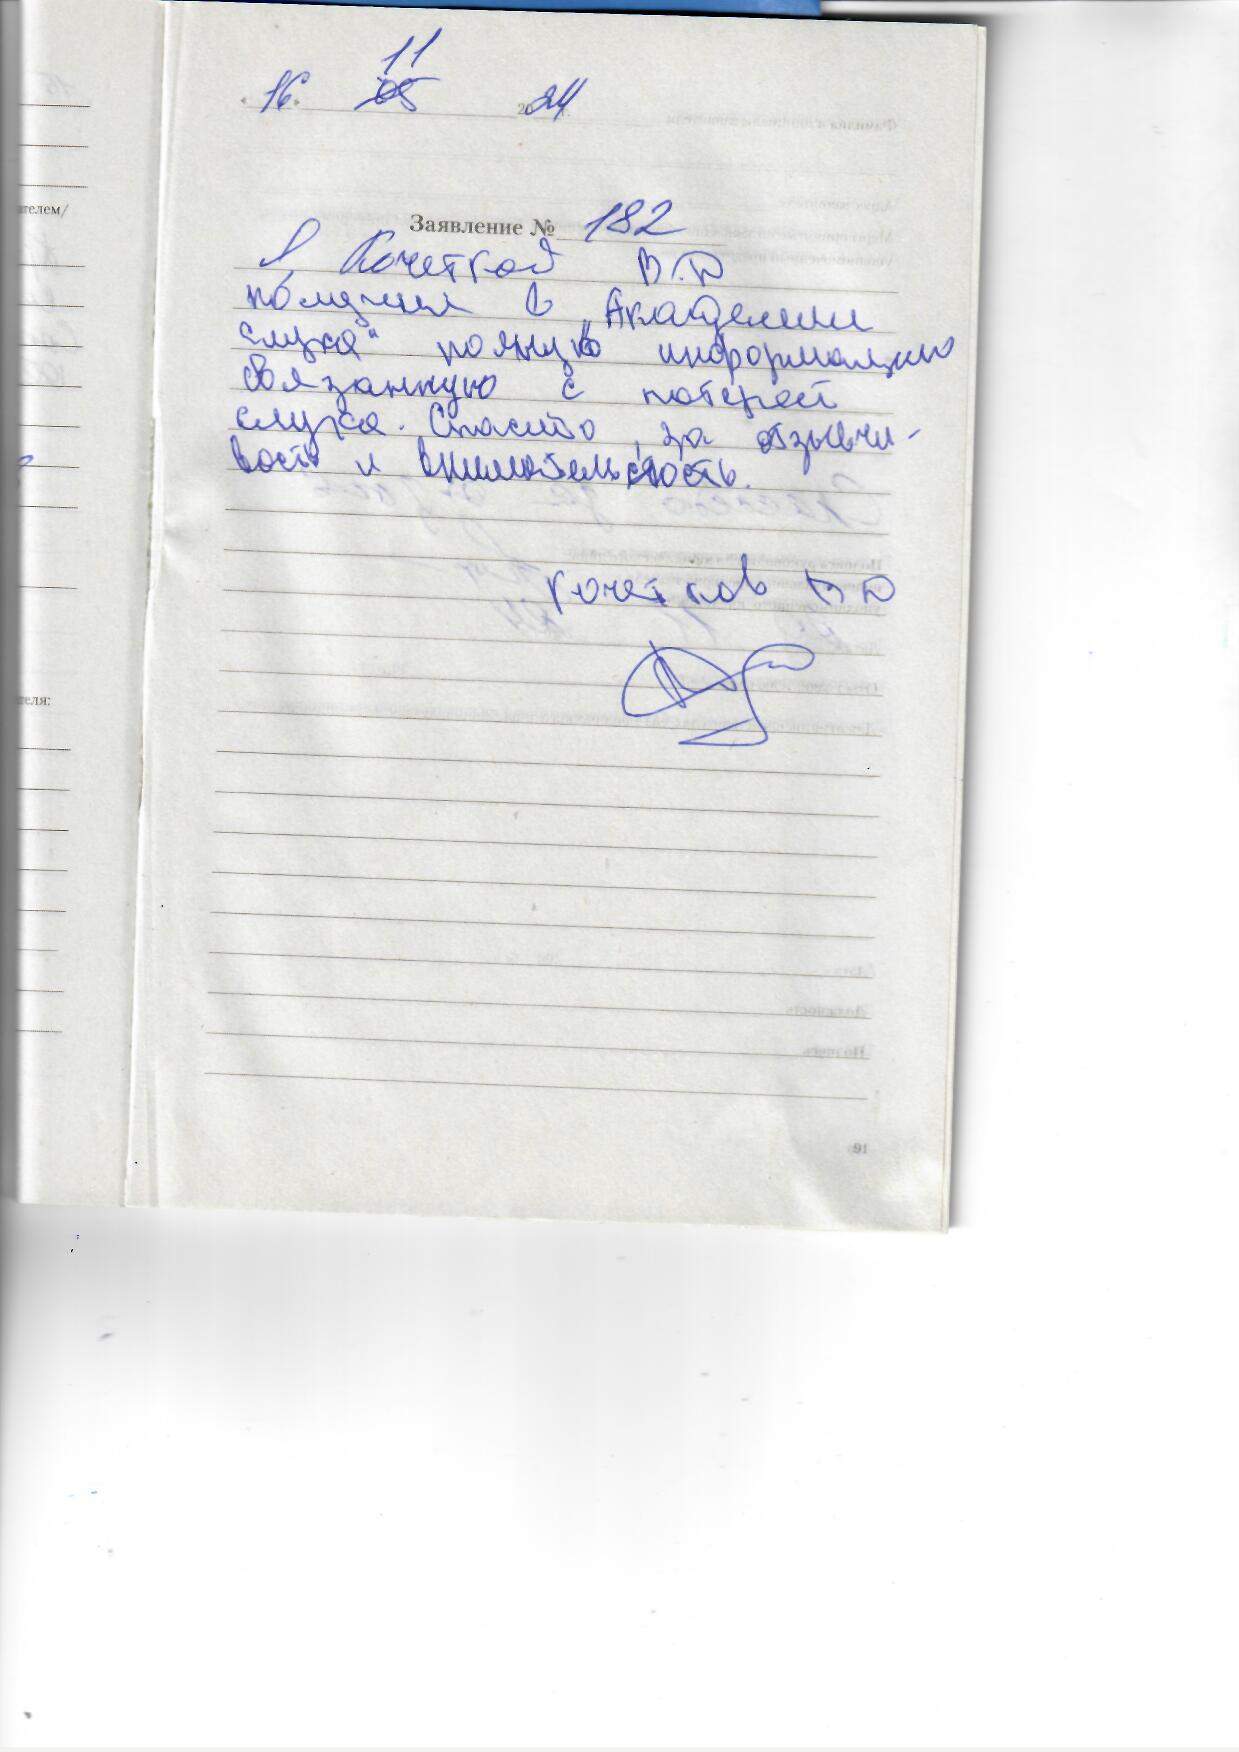 11
« 16 » 05 2024
Заявление № 182
Я Кочетков В.Д
получил в „Академии
слуха" полную информацию
связанную с потерей
слуха. Спасибо, за отзывчи-
вость и внимательность.
Кочетков В Д
ателем/
теля:
91